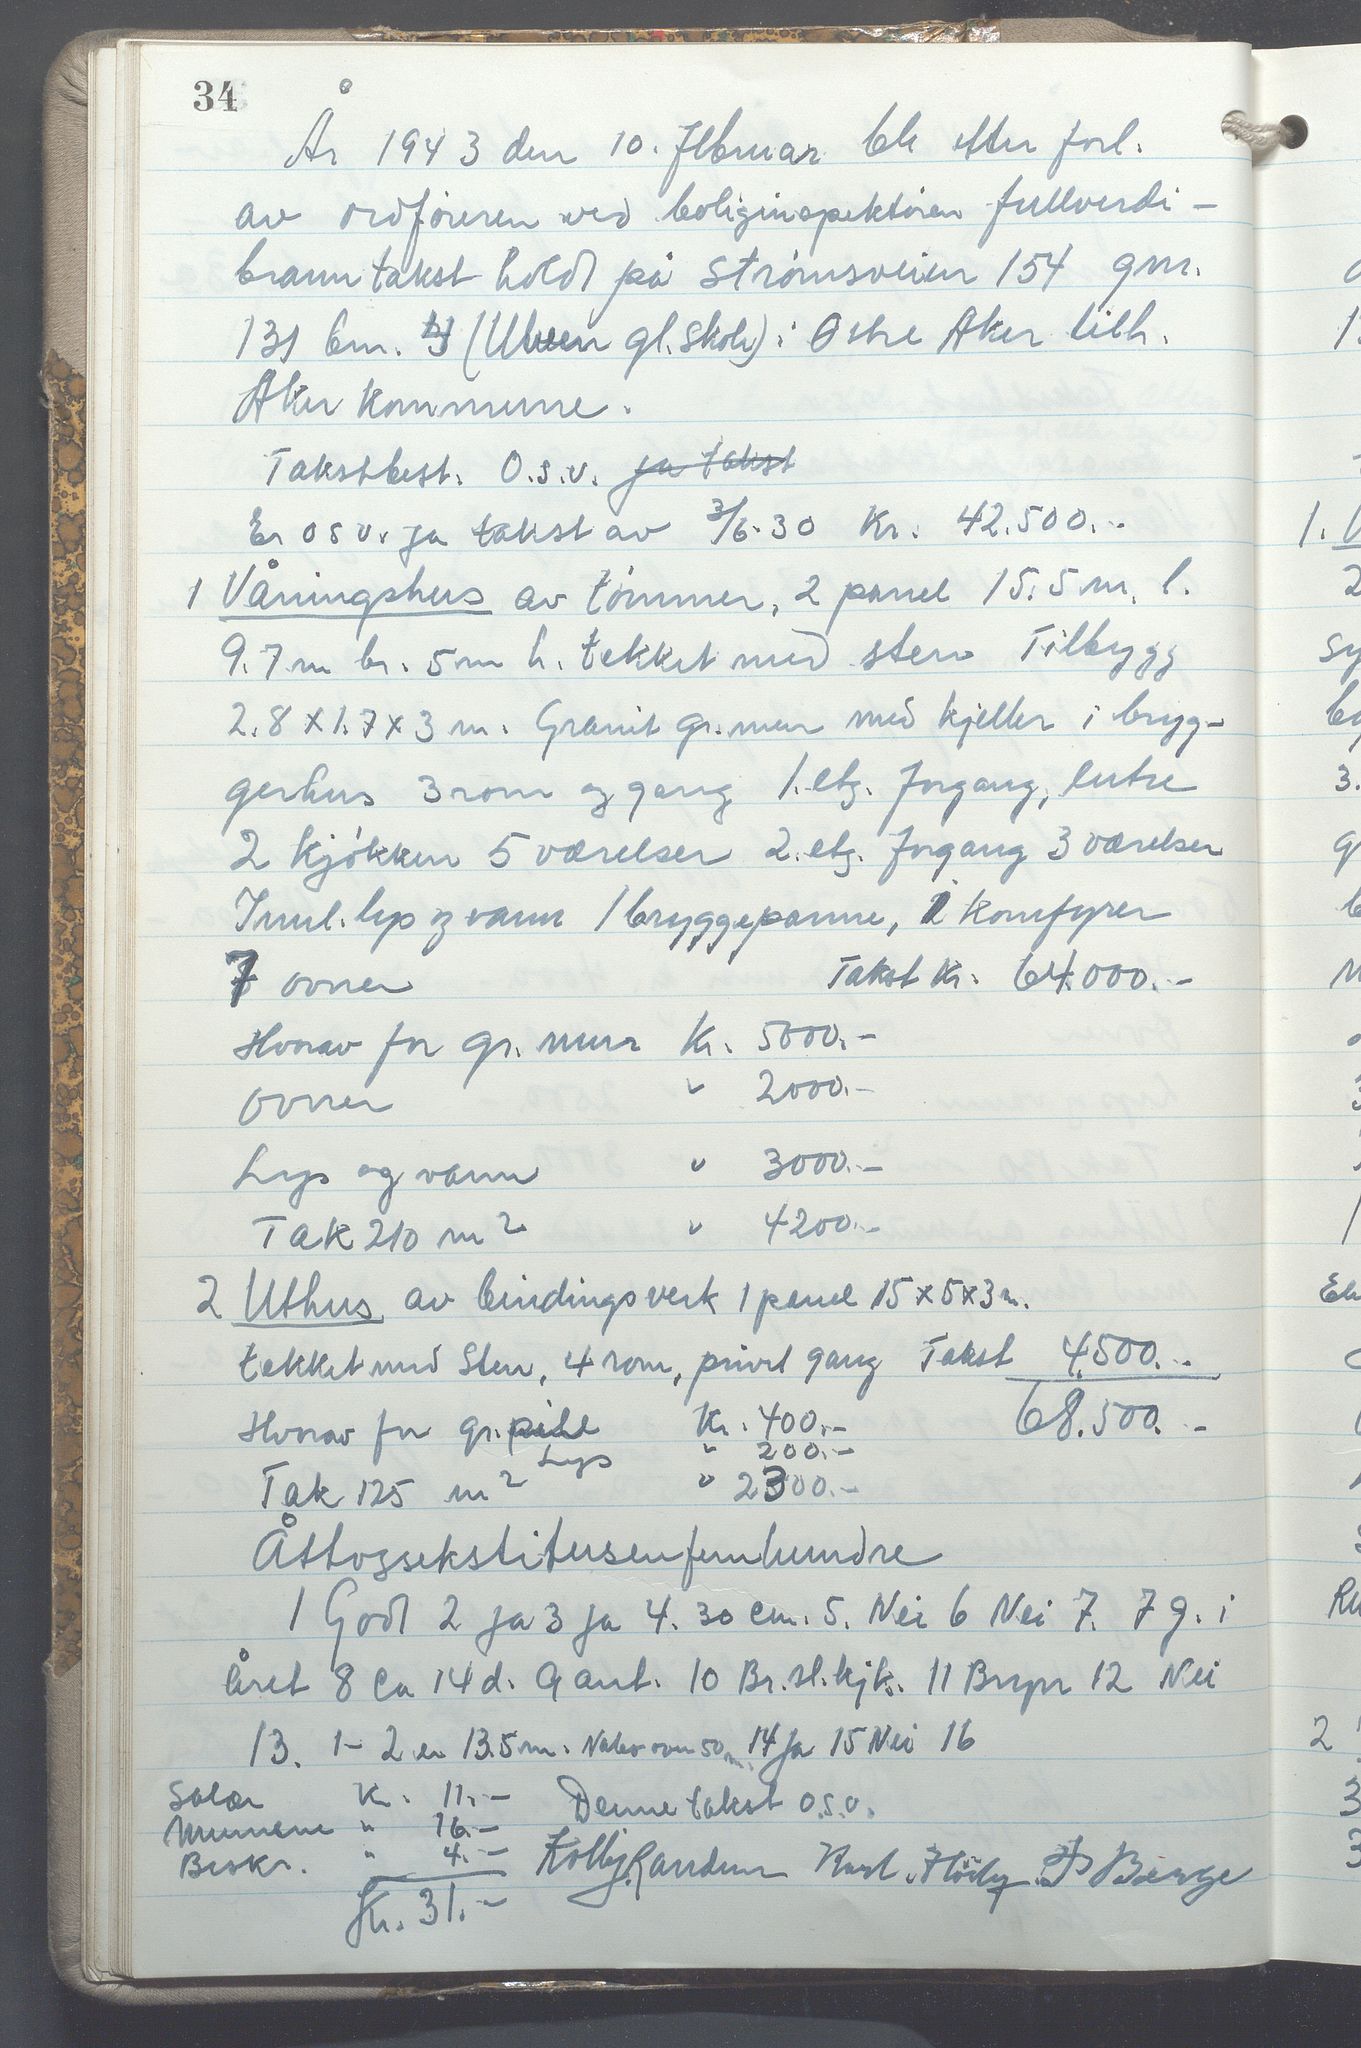 34
År 1943 den 10. Februar ble etter forl.
av ordføreren ved boliginspektøren fullverdi-
branntakst holdt på Strømsveien 154 gnr.
131 bnr. (Ulven gl. skole) i Østre Aker tilh.
Aker kommune.
Takstbest. O.s.v. ja takst
Er osv. ja takst av 3/6-30 Kr. 42.500.-
1 Våningshus av tømmer, 2 panel 15.5 m. l.
9.7 m br. 5 m h. tekket med sten Tilbygg
2.8 x 1.7 x 3 m. Granit gr.mur med kjeller i bryg-
gerhus 3 rom og gang 1. etg. forgang, entre
2 kjøkken 5 værelser 2. etg. forgang 3 værelser
Innl. lys og vann 1 bryggepanne, komfyrer
7 ovner Takst kr. 64.000.-
Hvorav for gr. mur Kr. 5000.-
ovner " 2000.-
Lys og vann " 3000.-
Tak 210 m2 " 4200.-
2 Uthus av bindingsverk 1 panel 15 x 5 x 3 m.
tekket med Sten, 4 rom, privet gang Takst 4.500.-
Hvorav for gr. Kr. 400.- 68.500.-
Lys " 200.-
Tak 125 m2 " 2300.-
Åttogsekstitusenfemhundre
1 God 2 ja 3 ja 4. 30 cm. 5. Nei 6 Nei 7. 7 g. i
året 8 Ca 14 d. 9 ant. 10 Br.sl.kjk. 11 Brypr 12 Nei
13. 1-2 er 13.5 m. Nabo over 50 m. 14 ja 15 Nei 16
Salær Kr. 11.- Denne takst o.s.v.
Mennene " 16.-
Beskr. " 4.- Kolbj. Randem Karl Berge
Kr. 31.-